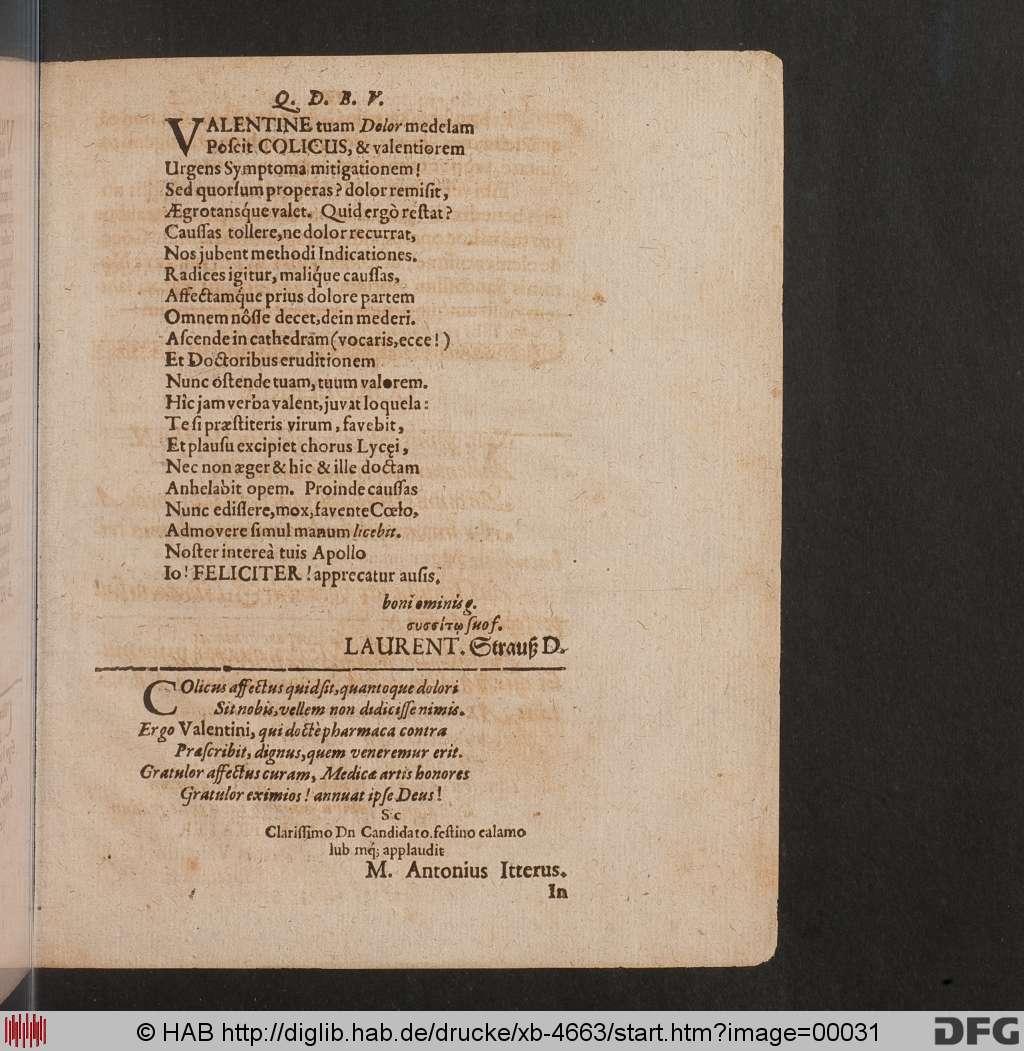 Q. D. B. V.
VALENTINE tuam Dolor medelam
Poſcit COLICUS, & valentiorem
Urgens Symptoma mitigationem!
Sed quorſum properas? dolor remiſit,
Ægrotansq́ue valet. Quid ergò reſtat?
Cauſſas tollere, ne dolor recurrat,
Nos jubent methodi Indicationes.
Radices igitur, maliq́ue cauſſas,
Affectamq́ue prius dolore partem
Omnem nôſſe decet, dein mederi.
Aſcende in cathedram (vocaris, ecce!)
Et Doctoribus eruditionem
Nunc oſtende tuam, tuum valorem.
Hîc jam verba valent, juvat loquela:
Te ſi præſtiteris virum, favebit,
Et plauſu excipiet chorus Lycęi,
Nec non æger & hic & ille doctam
Anhelabit opem. Proinde cauſſas
Nunc ediſſere, mox, favente Cœlo,
Admovere ſimul manum licebit.
Noſter intereà tuis Apollo
Io! FELICITER! apprecatur auſis.
boni ominis g.
συσσίτῳ ſuo f.
LAURENT. Strauß D.
COlicus affectus quid ſit, quantoque dolori
Sit nobis, vellem non didiciſſe nimis.
Ergo Valentini, qui doctè pharmaca contra
Præſcribit, dignus, quem veneremur erit.
Gratulor affectus curam, Medicæ artis honores
Gratulor eximios! annuat ipſe Deus!
Sic
Clariſſimo Dn Candidato. feſtino calamo
lub mq́; applaudit
M. Antonius Itterus.
In
© HAB http://diglib.hab.de/drucke/xb-4663/start.htm?image=00031
DFG